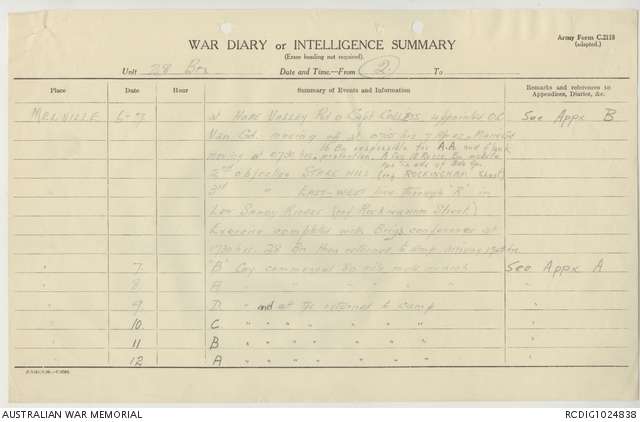 Army Form C.2118
(adapted.)
WAR DIARY or INTELLIGENCE SUMMARY
(Erase heading not required).
Unit 28 Bn Date and Time—From (2) To
Place Date Hour Summary of Events and Information Remarks and references to Appendices, Diaries, &c.
MELVILLE 6-7 at Hope Valley Rd Capt appointed O.C. See Appx B
Van. Gd. moving off at 0705 hrs
Bn responsible for A.A. and
moving at 0730 hrs protection.
2nd objective STAKE HILL (ROCKINGHAM Sheet)
3rd " EAST-WEST line through "R" in
Low Sandy Ridges (ref Rockingham Sheet)
Exercise completed with Brigs conference at
1730 hrs. 28 Bn then returned to camp
" 7. "B" Coy commenced 80 mile route march See Appx A
" 8. A " " " " " "
" 9. D " and at 9 returned to camp "
" 10. C " " " " " "
" 11 B " " " " " "
" 12 A " " " " " "
AUSTRALIAN WAR MEMORIAL RCDIG1024838